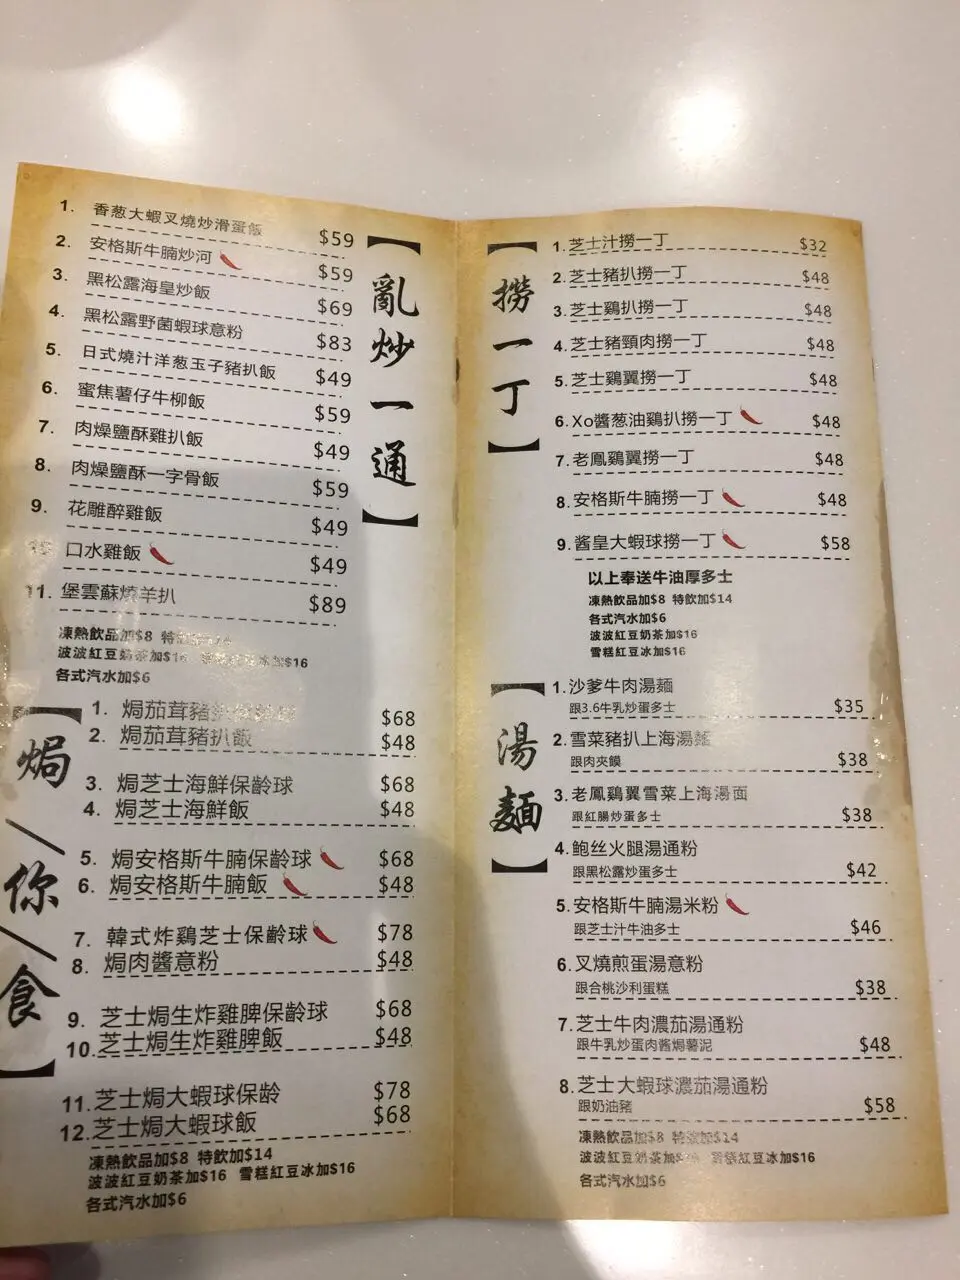 【亂炒一通】
1. 香葱大蝦叉燒炒滑蛋飯 $59
2. 安格斯牛腩炒河 $59
3. 黑松露海皇炒飯 $69
4. 黑松露野菌蝦球意粉 $83
5. 日式燒汁洋葱玉子豬扒飯 $49
6. 蜜焦薯仔牛柳飯 $59
7. 肉燥鹽酥雞扒飯 $49
8. 肉燥鹽酥一字骨飯 $59
9. 花雕醉雞飯 $49
10. 口水雞飯 $49
11. 堡雲蘇燒羊扒 $89
凍熱飲品加$8 特飲加$14
波波紅豆奶茶加$16 雪糕紅豆冰加$16
各式汽水加$6
【焗/你/食】
1. 焗茄茸豬扒 $68
2. 焗茄茸豬扒飯 $48
3. 焗芝士海鮮保齡球 $68
4. 焗芝士海鮮飯 $48
5. 焗安格斯牛腩保齡球 $68
6. 焗安格斯牛腩飯 $48
7. 韓式炸鷄芝士保齡球 $78
8. 焗肉醬意粉 $48
9. 芝士焗生炸雞脾保齡球 $68
10.芝士焗生炸雞脾飯 $48
11.芝士焗大蝦球保齡 $78
12.芝士焗大蝦球飯 $68
凍熱飲品加$8 特飲加$14
波波紅豆奶茶加$16 雪糕紅豆冰加$16
各式汽水加$6
【撈一丁】
1.芝士汁撈一丁 $32
2.芝士豬扒撈一丁 $48
3.芝士鷄扒撈一丁 $48
4.芝士豬頸肉撈一丁 $48
5.芝士鷄翼撈一丁 $48
6.Xo醬葱油鷄扒撈一丁 $48
7.老鳳鷄翼撈一丁 $48
8.安格斯牛腩撈一丁 $48
9.酱皇大蝦球撈一丁 $58
以上奉送牛油厚多士
凍熱飲品加$8 特飲加$14
各式汽水加$6
波波紅豆奶茶加$16
雪糕紅豆冰加$16
【湯麵】
1.沙爹牛肉湯麵
跟3.6牛乳炒蛋多士 $35
2.雪菜豬扒上海湯麵
跟肉夾饃 $38
3.老鳳鷄翼雪菜上海湯面
跟紅腸炒蛋多士 $38
4.鮑丝火腿湯通粉
跟黑松露炒蛋多士 $42
5.安格斯牛腩湯米粉
跟芝士汁牛油多士 $46
6.叉燒煎蛋湯意粉
跟合桃沙利蛋糕 $38
7.芝士牛肉濃茄湯通粉
跟牛乳炒蛋肉酱焗薯泥 $48
8.芝士大蝦球濃茄湯通粉
跟奶油豬 $58
凍熱飲品加$8 特飲加$14
波波紅豆奶茶加$16 雪糕紅豆冰加$16
各式汽水加$6